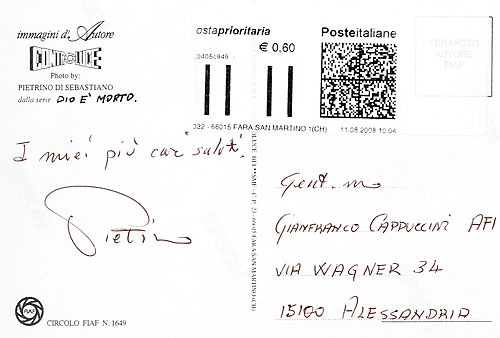 immagini d'Autore
CONTROLUCE
Photo by:
PIETRINO DI SEBASTIANO
dalla serie DIO E' MORTO.
ostaprioritaria
Posteitaliane
€ 0,60
0405c949
032 - 66015 FARA SAN MARTINO 1(CH)
11.08.2008 10.04
VERAFOTO
AUTORE
FIAF
I miei più cari saluti.
Pietrino
Gent.mo
GIANFRANCO CAPPUCCINI AFI
VIA WAGNER 34
15100 ALESSANDRIA
FIAF
CIRCOLO FIAF N. 1649